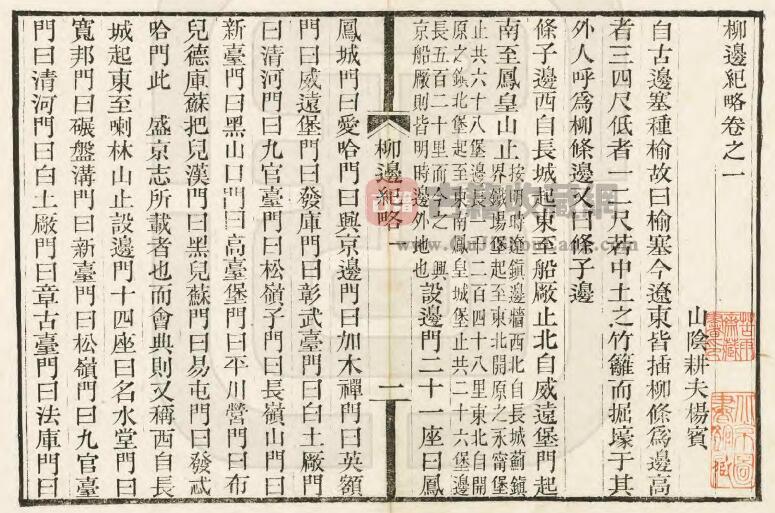 柳邊紀略卷之一
山陰耕夫楊賓
自古邊塞種榆故曰榆塞今遼東皆插柳條爲邊高
者三四尺低者一二尺若中土之竹籬而掘壕于其
外人呼爲柳條邊又曰條子邊
條子邊西自長城起東至船廠止北自威遠堡門起
南至鳳皇山止
按明時遼鎮邊牆西北自長城薊鎮
界鐵場堡起至東北開原之永甯堡
止共六十八堡邊長一千二百四十八里東北自開
原之鎮北堡起至東南鳳皇城堡止共二十六堡邊
長五百二十里而今之 興
京船廠則皆明時邊外地也
設邊門二十一座曰鳳
柳邊紀略一
二
鳳城門曰愛哈門曰興京邊門曰加木禪門曰英額
門曰威遠堡門曰發庫門曰彰武臺門曰白土廠門
曰清河門曰九官臺門曰松嶺子門曰長嶺山門曰
新臺門曰黑山口門曰高臺堡門曰平川營門曰布
兒德庫蘇把兒漢門曰黑兒蘇門曰易屯門曰發忒
哈門此 盛京志所載者也而會典則又稱西自長
城起東至喇林山止設邊門十四座曰名水堂門曰
寬邦門曰碾盤溝門曰新臺門曰松嶺門曰九官臺
門曰清河門曰白土廠門曰章古臺門曰法庫門曰